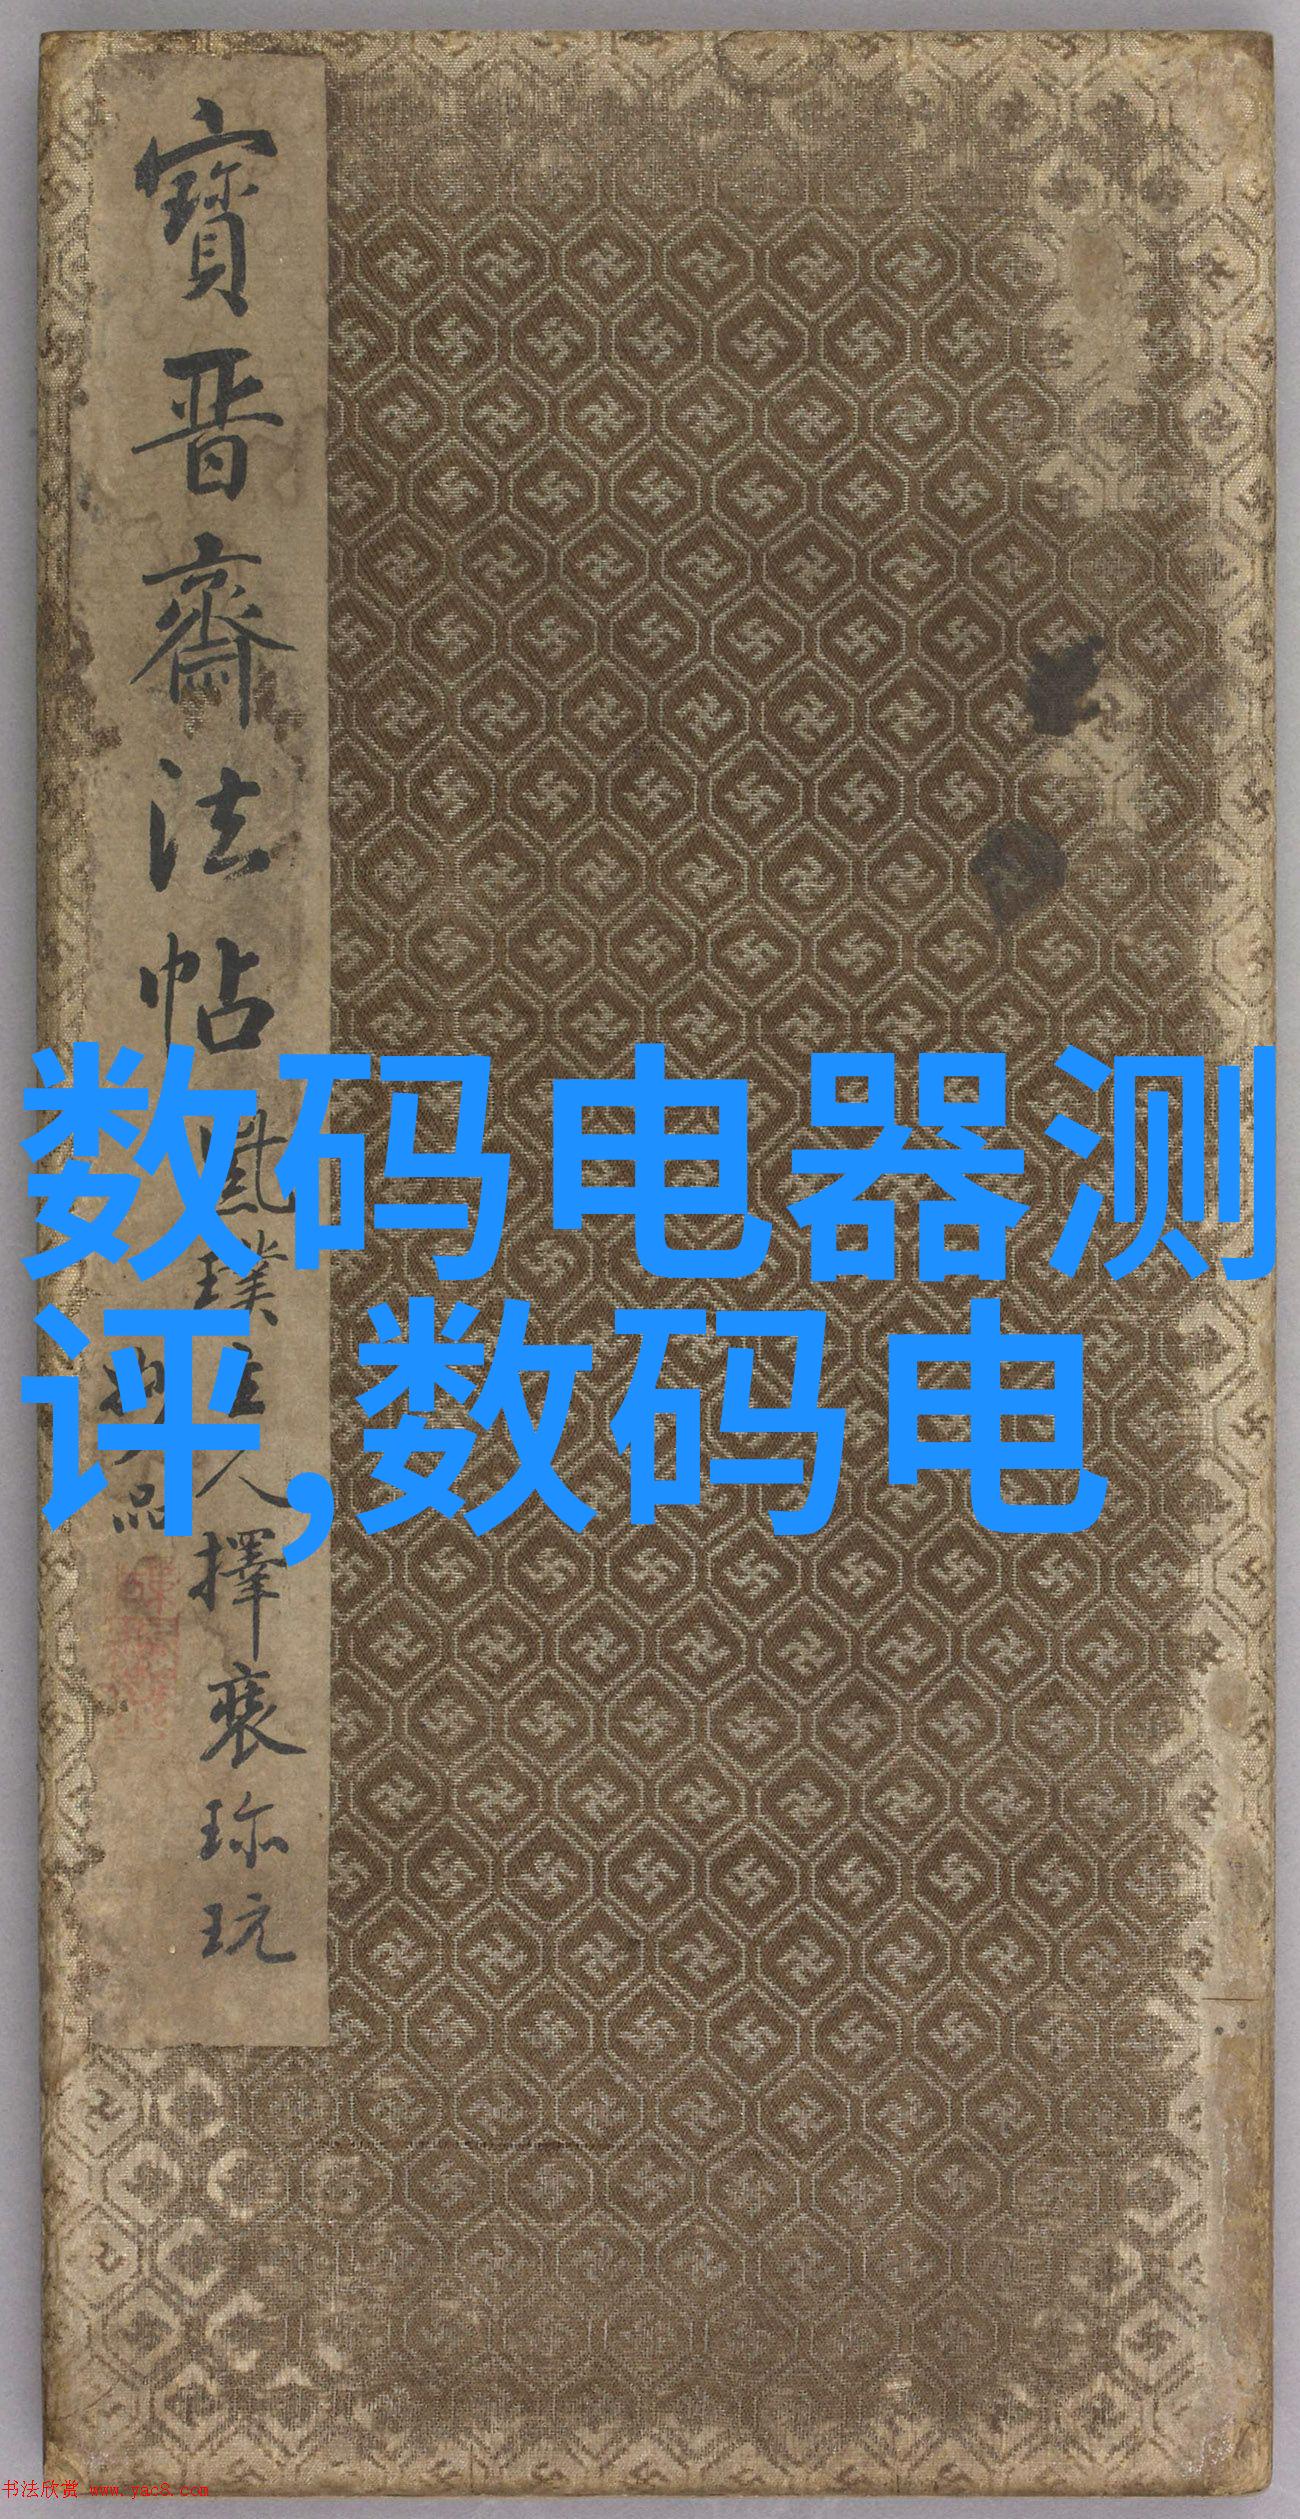 寶晉齋法帖
鳳璞主人擇裝珎玩
品
数码电器测
评,数码电
书法欣赏 www.yac8.com